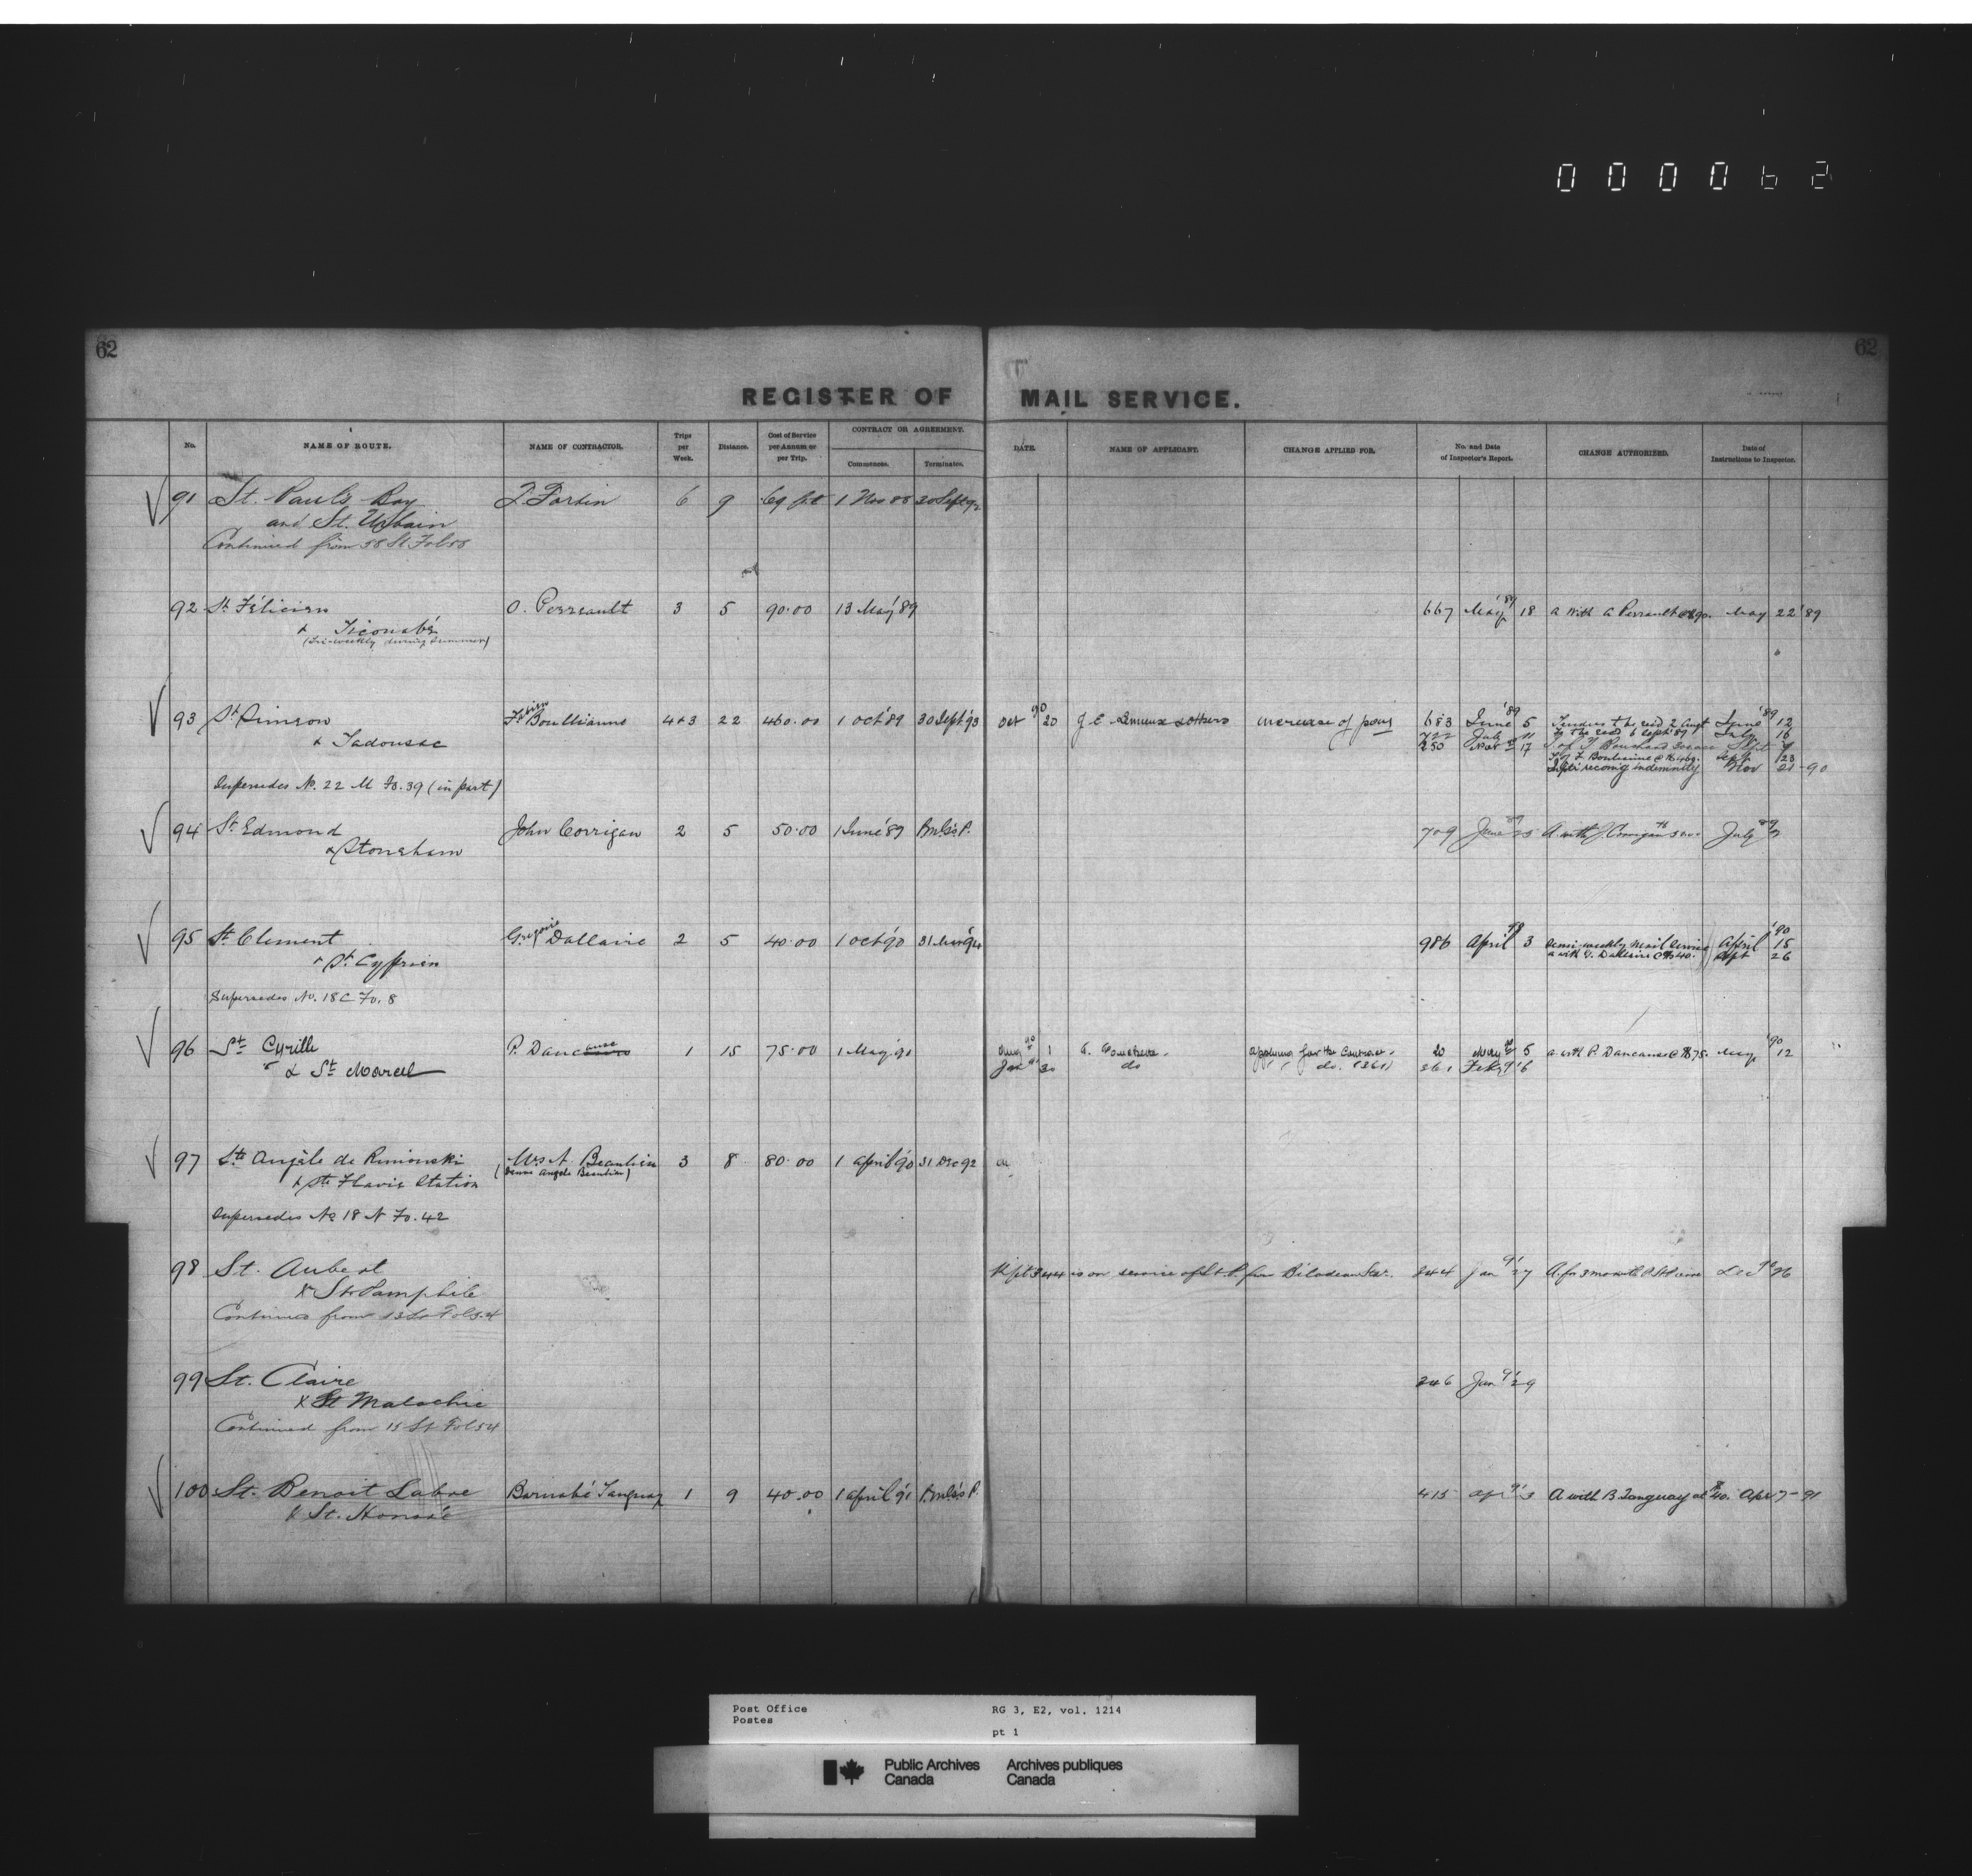 000062
62
62
REGISTER OF MAIL SERVICE.
No. NAME OF ROUTE. NAME OF CONTRACTOR. Trips per Week. Distance. Cost of Service per Annum or per Trip. CONTRACT OR AGREEMENT. Commences. Terminates. DATE. NAME OF APPLICANT. CHANGE APPLIED FOR. No. and Date of Inspector's Report. CHANGE AUTHORIZED. Date of Instructions to Inspector.
91 St. Paul's Bay T. Fortin 6 9 1 Nov 88 30 Sept 92
and St. Urbain
Continued from 58 St Fol 58
92 St Félicien O. Perreault 3 5 90.00 13 May '89 667 May '89 18 a with A Perrault @ $90. May 22 '89
& Ticouabé
(Tri-weekly during summer)
93 St Simeon Fabien Boullianne 4+3 22 460.00 1 Oct '89 30 Sept '93 Oct 90 20 J. E. Lemieux & others increase of pay 683 June '89 5 Tenders to be recd 2 Augt June '89 12
& Tadousac 722 July 11 To be recd 6 Sept '89 July 16
250 Nov 17 T. of T Bouchard Sept 9
T of F Boulianne @ $460. Sept 23
recomg indemnity Nov 21-90
Supersedes No. 22 M Fo. 39 (in part)
94 St Edmond John Corrigan 2 5 50.00 1 June '89 P.M.G's P. 709 June 89 25 A. with J. Corrigan July 89
& Stoneham
95 St Clement Gregoire Dallaire 2 5 40.00 1 Oct '90 31 Mar '94 986 April 90 3 Semi-weekly Mail Service April '90 15
& St Cyprien a with G. Dallaire @ $40. Sept 26
Supersedes No. 18 C Fo. 8
96 St Cyrille P. Dancause 1 15 75.00 1 May '90 Aug 90 1 applying for the Contract. 20 May 90 5 a. with P. Dancause @ $75. May '90 12
& St Marcel Jan 30 do do. (361) 361 Feby 91 6
97 Ste Angèle de Rimouski Mrs A. Beaulieu 3 8 80.00 1 April '90 31 Dec 92
& Ste Flavie Station (Dame Angele Beaulieu)
Supersedes No 18 N Fo. 42
98 St. Aubert Rept 344 is on service of St P. from Bilodeau 344 Jan 91 27 A. for 3 months Dec 90 26
& St Pamphile
Continued from 13 St Fol 54
99 St. Claire 346 Jan 91 29
& St Malachie
Continued from 15 St Fol 54
100 St. Benoit Labre Barnabé Tanguay 1 9 40.00 1 April '91 P.M.G's P. 415 Apr 91 3 A with B. Tanguay at $40. Apr 7-91
& St. Honoré
Post Office RG 3, E2, vol. 1214
Postes
pt 1
Public Archives Archives publiques
Canada Canada